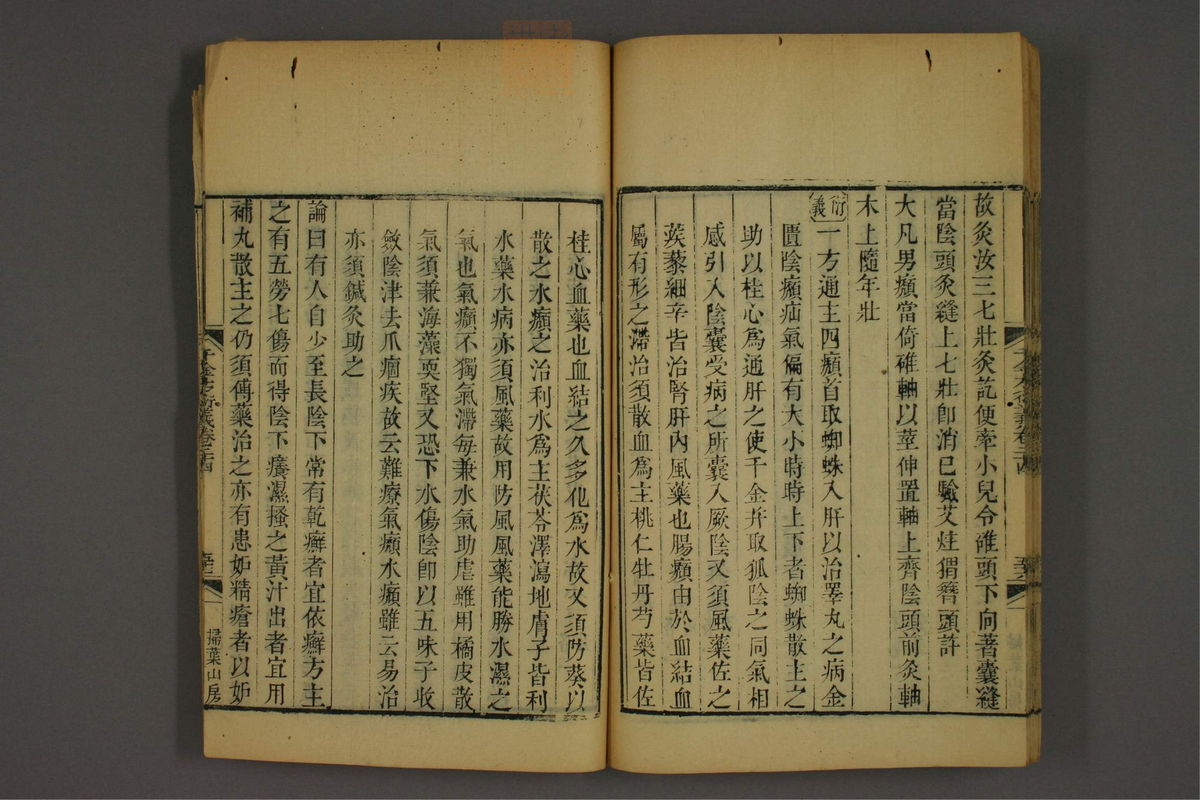 故灸汝三七壯灸訖便牽小兒令雀頭下向著囊縫
當陰頭灸縫上七壯卽消已驗艾炷猬簪頭許
大凡男㿗當倚碓軸以莖伸置軸上齊陰頭前灸軸
木上隨年壯
衍義一方通主四㿗首取蜘蛛入肝以治睪丸之病金
匱陰㿗疝氣偏有大小時時上下者蜘蛛散主之
助以桂心爲通肝之使千金幷取狐陰之同氣相
感引入陰囊受病之所囊入厥陰又須風藥佐之
蒺藜細辛皆治腎肝內風藥也腸㿗由於血結血
屬有形之滯治須散血爲主桃仁牡丹芍藥皆佐
桂心血藥也血結之久多化爲水故又須防葵以
散之水㿗之治利水爲主茯苓澤瀉地膚子皆利
水藥水病亦須風藥故用防風風藥能勝水濕之
氣也氣㿗不獨氣滯每兼水氣助虐雖用橘皮散
氣須兼海藻耎堅又恐下水傷陰卽以五味子收
斂陰津去爪痼疾故云難療氣㿗水㿗雖云易治
亦須鍼灸助之
論曰有人自少至長陰下常有乾癬者宜依癬方主
之有五勞七傷而得陰下癢濕搔之黃汁出者宜用
補丸散主之仍須傅藥治之亦有患妒精瘡者以妒
千金方衍義卷二十四
掃葉山房